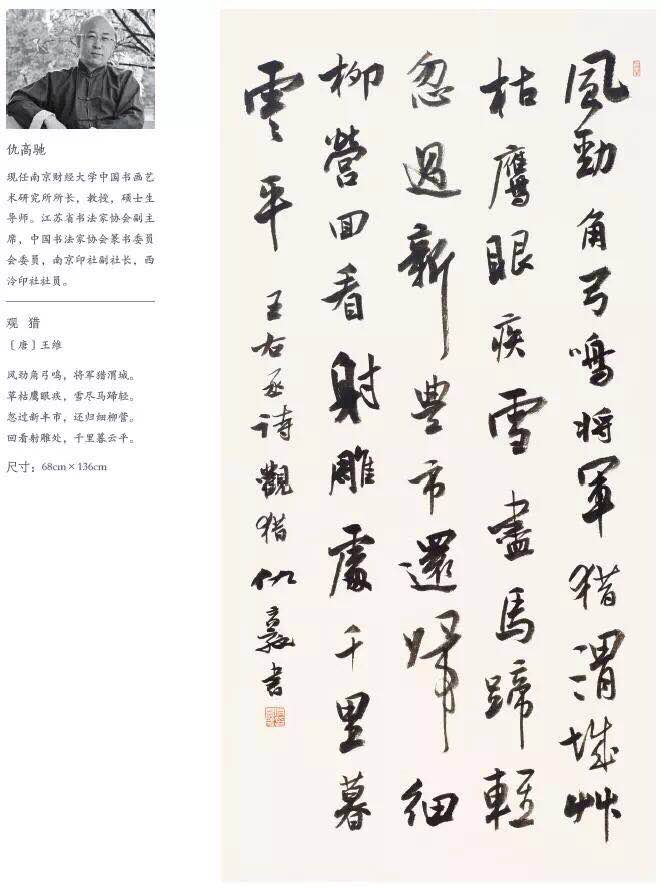 仇高驰
现任南京财经大学中国书画艺
术研究所所长，教授，硕士生
导师。江苏省书法家协会副主
席，中国书法家协会篆书委员
会委员，南京印社副社长，西
泠印社社员。
观 猎
〔唐〕王维
风劲角弓鸣，将军猎渭城。
草枯鹰眼疾，雪尽马蹄轻。
忽过新丰市，还归细柳营。
回看射雕处，千里暮云平。
尺寸：68cm×136cm
風勁角弓鳴將軍猎渭城艸
枯鷹眼疾雪盡馬蹄輕
忽過新豐市還歸细
柳營回看射雕處千里暮
雲平 王右丞诗觀猎 仇書